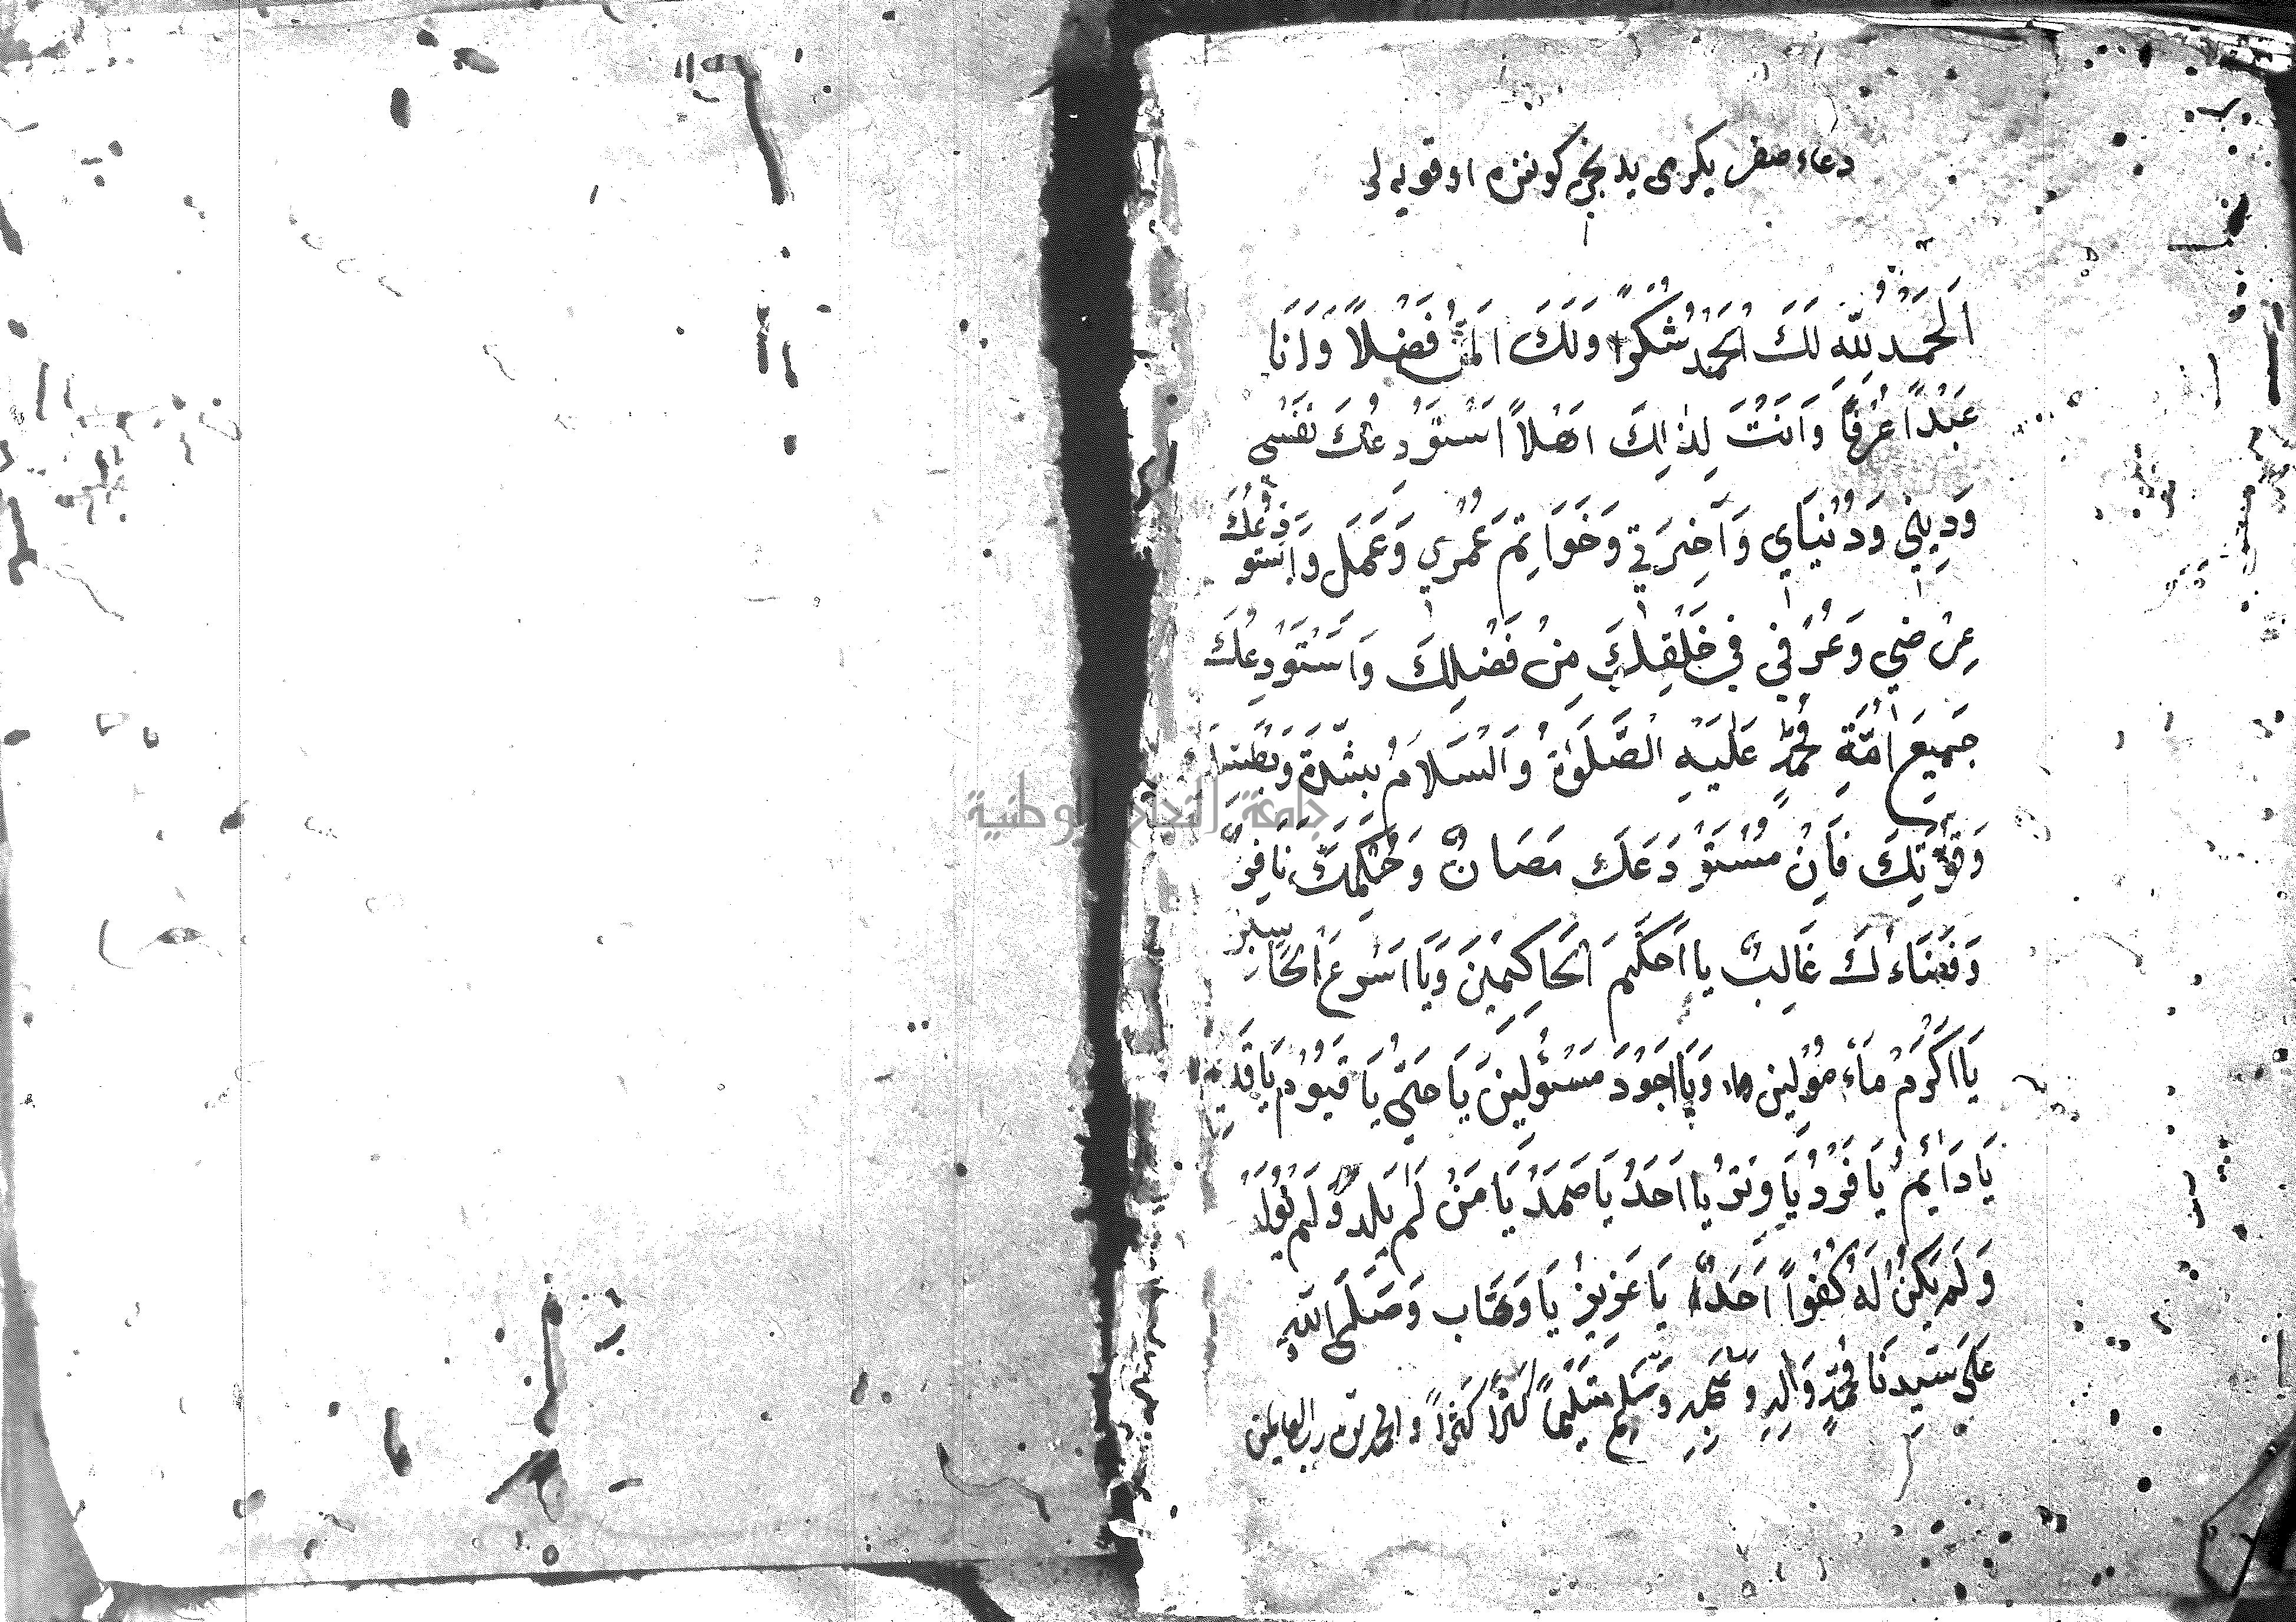 دعاء صفر يكرمى يدنجى كوننده اوقويه لر
اَلْحَمْدُ لِلّٰه لَكَ الْحَمْدُ شُكْرًا وَلَكَ الْمَنُّ فَضْلاً وَاَنَا
عَبْدًا عُرْفًا وَاَنْتَ لِذٰلِكَ اَهْلاً اَسْتَوْدِعُكَ نَفْسِي
وَدِينِي وَدُنْيَاي وَآخِرَتِي وَخَوَاتِمَ عُمْرِي وَعَمَلِ وَاَسْتَوْدِعُكَ
عِرْضِي وَعُرْفِي فِي خَلْقِكَ مِنْ فَضْلِكَ وَاَسْتَوْدِعُكَ
جَمِيعَ اُمَّةِ مُحَمَّدٍ عَلَيْهِ الصَّلَوٰةُ وَالسَّلَامُ بِشِدَّةِ
وَقُوَّتِكَ فَاِنَّ مُسْتَوْدَعَكَ مَصَانٌ وَحُكْمَكَ نَافِذٌ
وَقَضَاءُكَ غَالِبٌ يا اَحْكَمَ الْحَاكِمِينَ وَيَا اَسْرَعَ الْحَاسِبِينَ
يَا اَكْرَمَ مَاْءمُولِينَ وَيَا اَجْوَدَ مَسْئُولِينَ يَا حَيُّ يَا قَيُّومُ يَا قَدِيمُ
يَا دَائِمُ يَا فَرْدُ يَا وِتْرُ يَا اَحَدُ يَا صَمَدُ يَا مَنْ لَمْ يَلِدْ وَلَمْ يُولَدْ
وَلَمْ يَكُنْ لَهُ كُفُوًا اَحَدٌ يَا عَزِيزُ يَا وَهَّاب وَصَلَّى اللّٰهُ
عَلَى سَيِّدِنَا مُحَمَّدٍ وَاٰلِهِ وَصَحْبِهِ وَسَلِّمْ تَسْلِيمًا كَثِيرًا كَثِيرًا والحمد لله رب العالمين
جامعة النجاح الوطنية